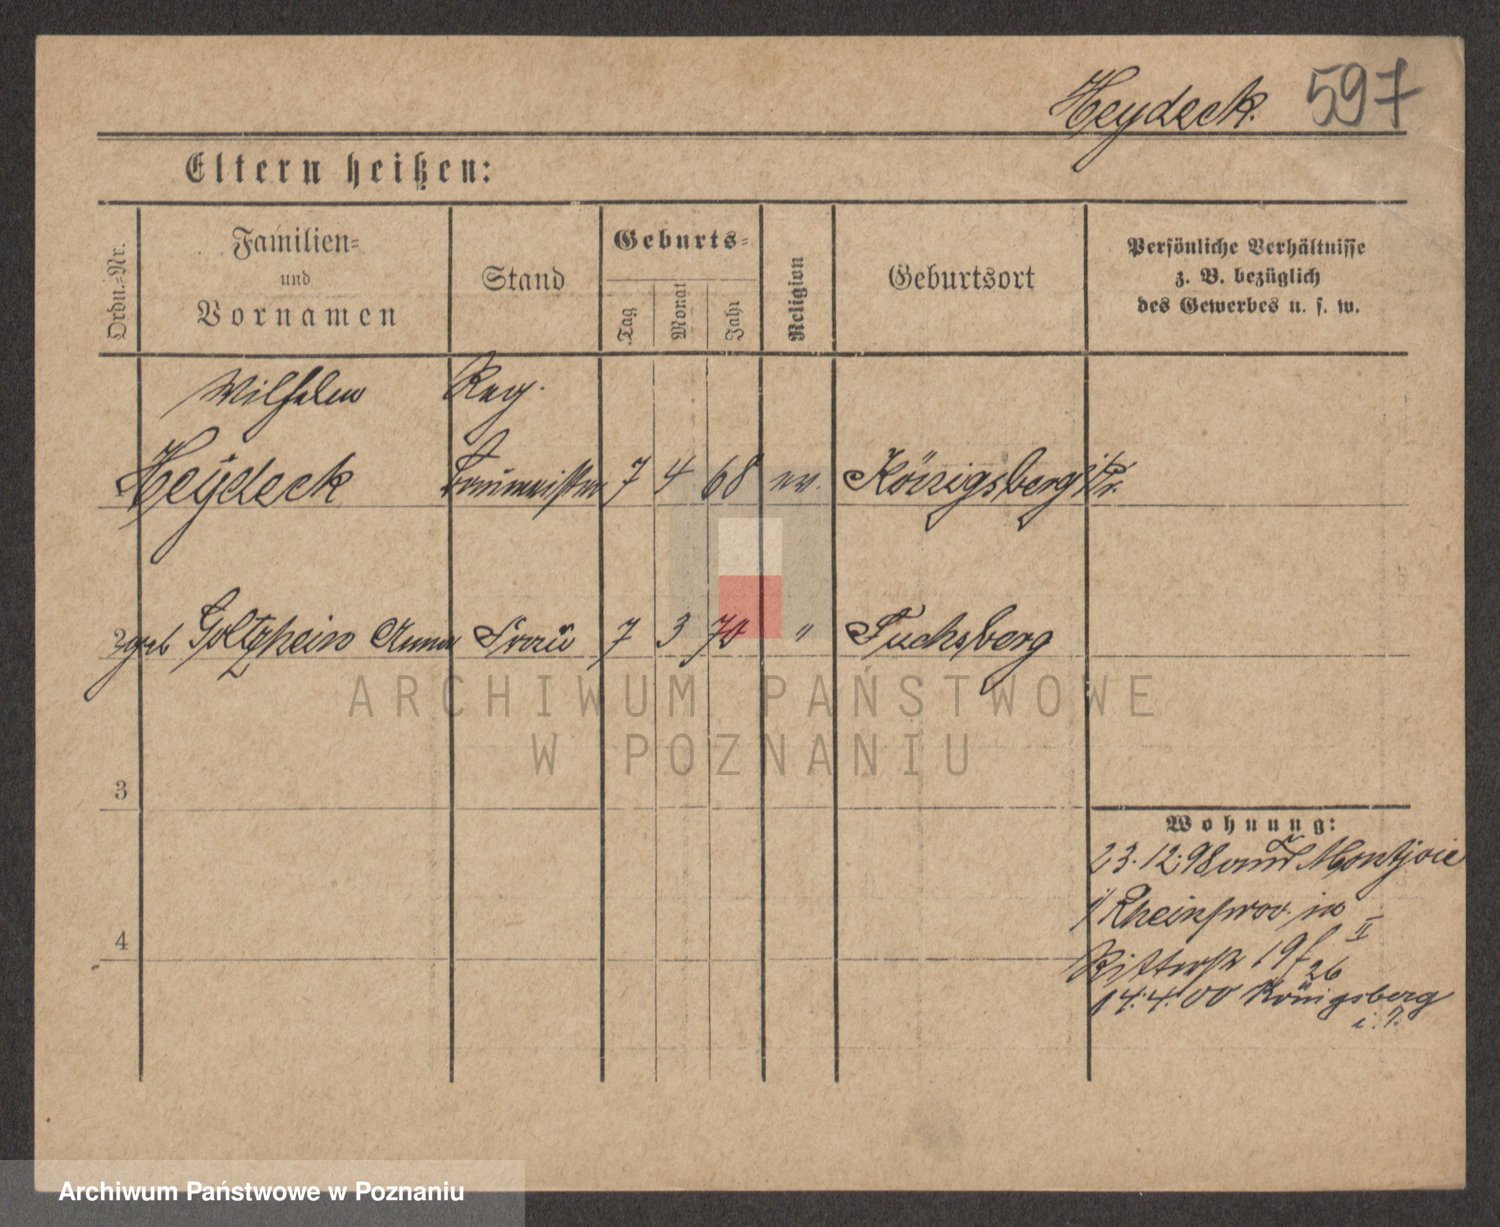 Heydeck. 597
Eltern heißen:
Ordn.=Nr.
Familien=
und
Vornamen
Stand
Geburts=
Tag
Monat
Jahr
Religion
Geburtsort
Persönliche Verhältnisse
z. B. bezüglich
des Gewerbes u. s. w.
Wilhelm Reg.
Heydeck Baumeister 7 4 68 ev. Königsberg i/Pr.
2 geb Goltzhein Anna Frau 7 3 70 " Fuchsberg
ARCHIWUM PAŃSTWOWE
W POZNANIU
3
4
Wohnung:
23.12.98 aus Montjoie
i/ Rheinprov. in
Ritterstr 19/26 II
14.4.00 Königsberg
i. P.
Archiwum Państwowe w Poznaniu